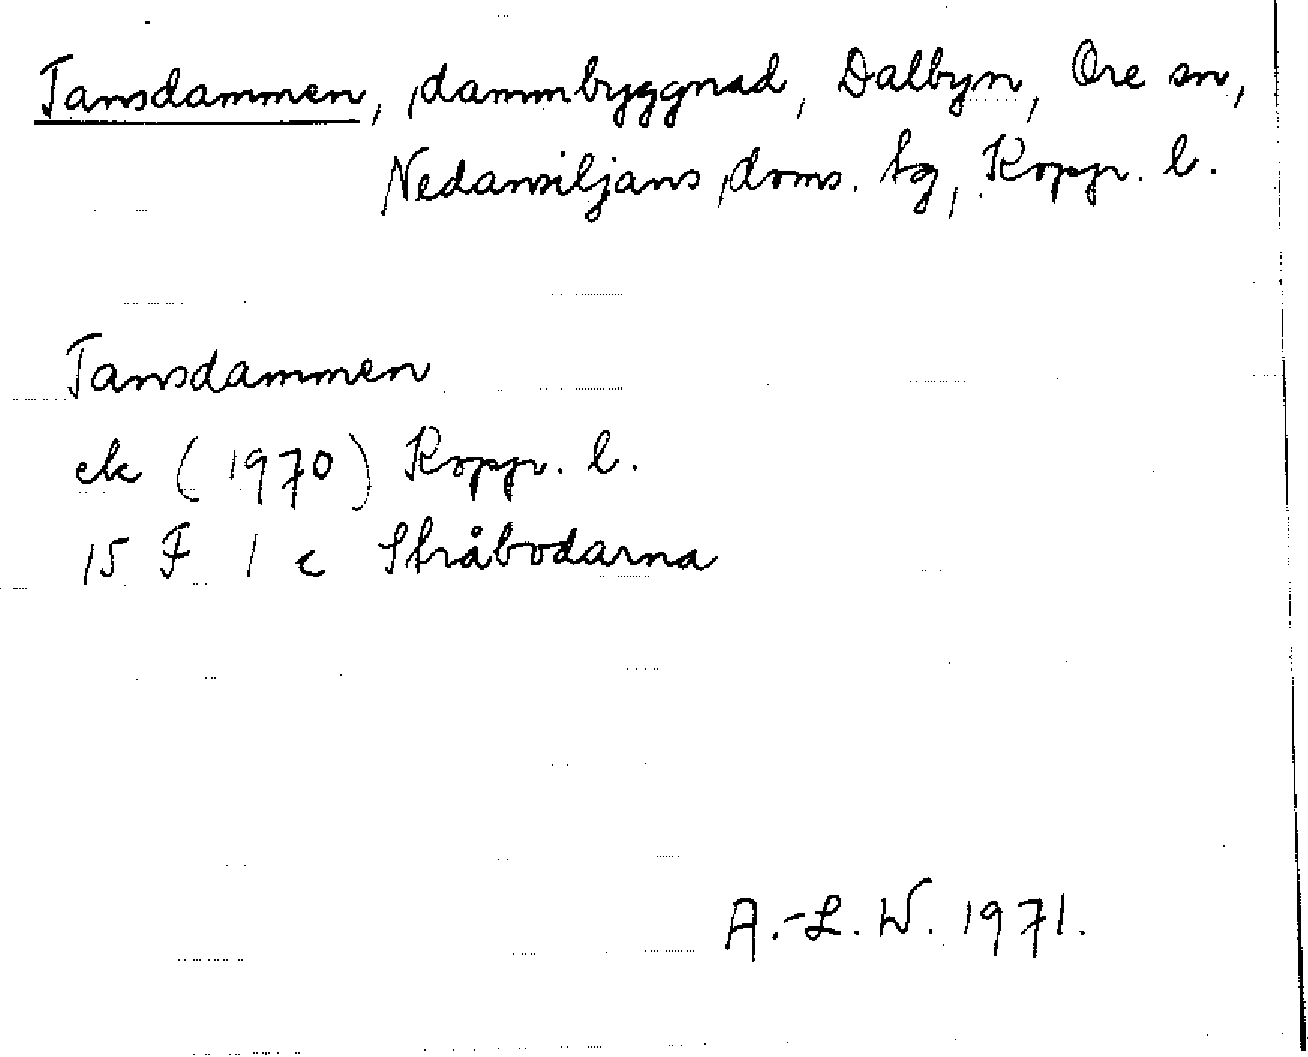 Tansdammen, dammbyggnad, Dalbyn, Ore sn,
Nedansiljans doms. tg, Kopp. l.
Tansdammen
ek (1970) Kopp. l.
15 F 1 c Stråbodarna
A.-L. W. 1971.